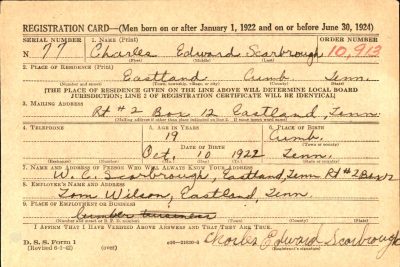 REGISTRATION CARD—(Men born on or after January 1, 1922 and on or before June 30, 1924)
SERIAL NUMBER 1. NAME (Print) ORDER NUMBER
N 77 Charles Edward Scarbrough 10,913
(First) (Middle) (Last)
2. PLACE OF RESIDENCE (Print)
Eastland Cumb. Tenn.
(Number and street) (Town, township, village, or city) (County) (State)
[THE PLACE OF RESIDENCE GIVEN ON THE LINE ABOVE WILL DETERMINE LOCAL BOARD
JURISDICTION; LINE 2 OF REGISTRATION CERTIFICATE WILL BE IDENTICAL]
3. MAILING ADDRESS
Rt #2 Box 12 Eastland, Tenn.
[Mailing address if other than place indicated on line 2. If same insert word same]
4. TELEPHONE 5. AGE IN YEARS 6. PLACE OF BIRTH
19 Cumb.
DATE OF BIRTH (Town or county)
Oct. 10 1922 Tenn.
(Exchange) (Number) (Mo.) (Day) (Yr.) (State or country)
7. NAME AND ADDRESS OF PERSON WHO WILL ALWAYS KNOW YOUR ADDRESS
W. C. Scarbrough, Eastland, Tenn Rt #2 Box 12
8. EMPLOYER'S NAME AND ADDRESS
Tom Wilson, Eastland, Tenn
9. PLACE OF EMPLOYMENT OR BUSINESS
business
(Number and street or R. F. D. number) (Town) (County) (State)
I AFFIRM THAT I HAVE VERIFIED ABOVE ANSWERS AND THAT THEY ARE TRUE.
D. S. S. Form 1
(Revised 6-9-42) (over) Charles Edward Scarbrough
(Registrant's signature)